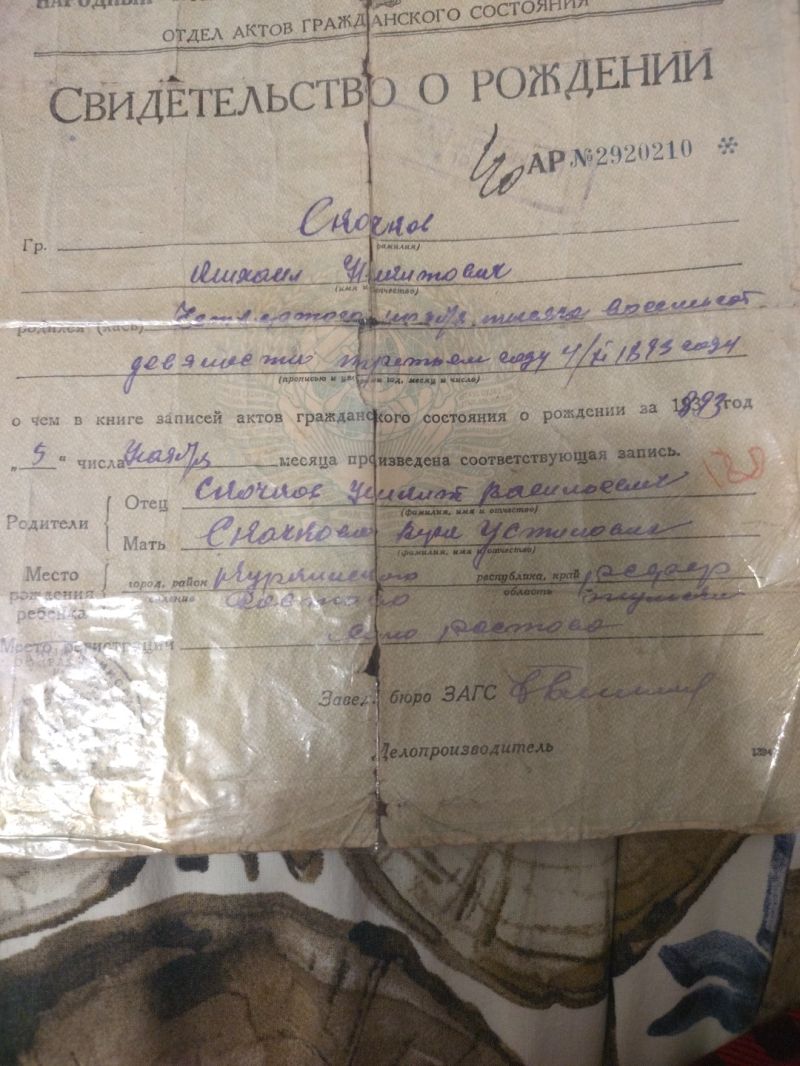 НАРОДНЫЙ
ОТДЕЛ АКТОВ ГРАЖДАНСКОГО СОСТОЯНИЯ
СВИДЕТЕЛЬСТВО О РОЖДЕНИИ
АР № 2920210
Гр. Скочков
(фамилия)
Михаил Никитович
(имя и отчество)
родился (лась) Четвертого ноября тысяча восемьсот
девяносто третьем году 4/XI 1893 году
(прописью и цифрами год, месяц и число)
о чем в книге записей актов гражданского состояния о рождении за 1893 год
„5“ числа Ноября месяца произведена соответствующая запись.
Родители
Отец Скочков Никит Васильевич
(фамилия, имя и отчество)
Мать Скочкова Устиновна
(фамилия, имя и отчество)
Место рождения ребенка
город, район республика, край РСФСР
селение область
Место регистрации село
Завед. бюро ЗАГС
Делопроизводитель